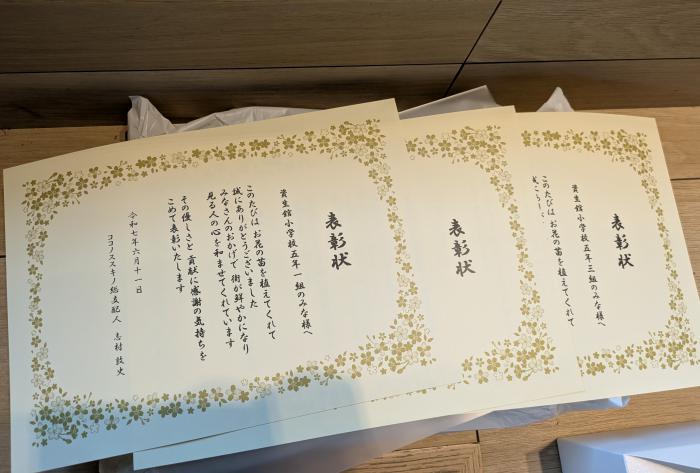 表彰状
資生館小学校五年三組のみな様へ
このたびは お花の苗を植えてくれて
表彰状
表彰状
資生館小学校五年一組のみな様へ
このたびは お花の苗を植えてくれて
誠にありがとうございました
みなさんのおかげで 街が鮮やかになり
見る人の心を和ませてくれています
その優しさと 貢献に感謝の気持ちを
こめて表彰いたします
令和七年六月十一日
ココノススキノ総支配人 志村 敦史